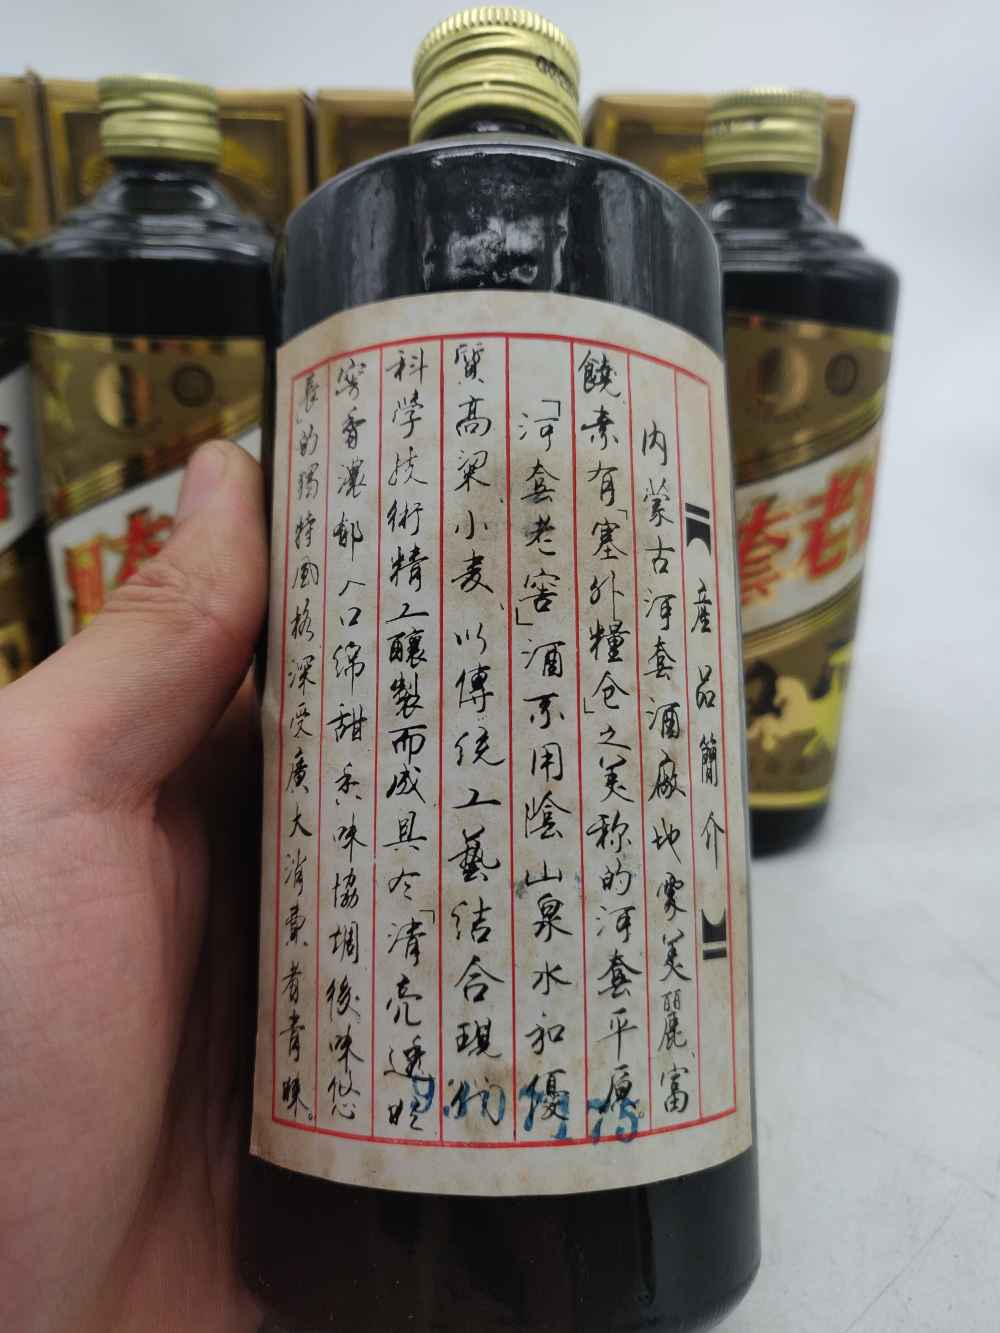 産品簡介
内蒙古河套酒廠地處美麗、富
饒素有「塞外糧仓」之美称的河套平原。
「河套老窖」酒系用陰山泉水和優
質高粱、小麦、以傳统工藝结合現代
科学技術精工釀製而成具有「清亮透明
窖香濃郁入口綿甜香味協調後味悠
長」的獨特風格深受廣大消費者青睐。
套老